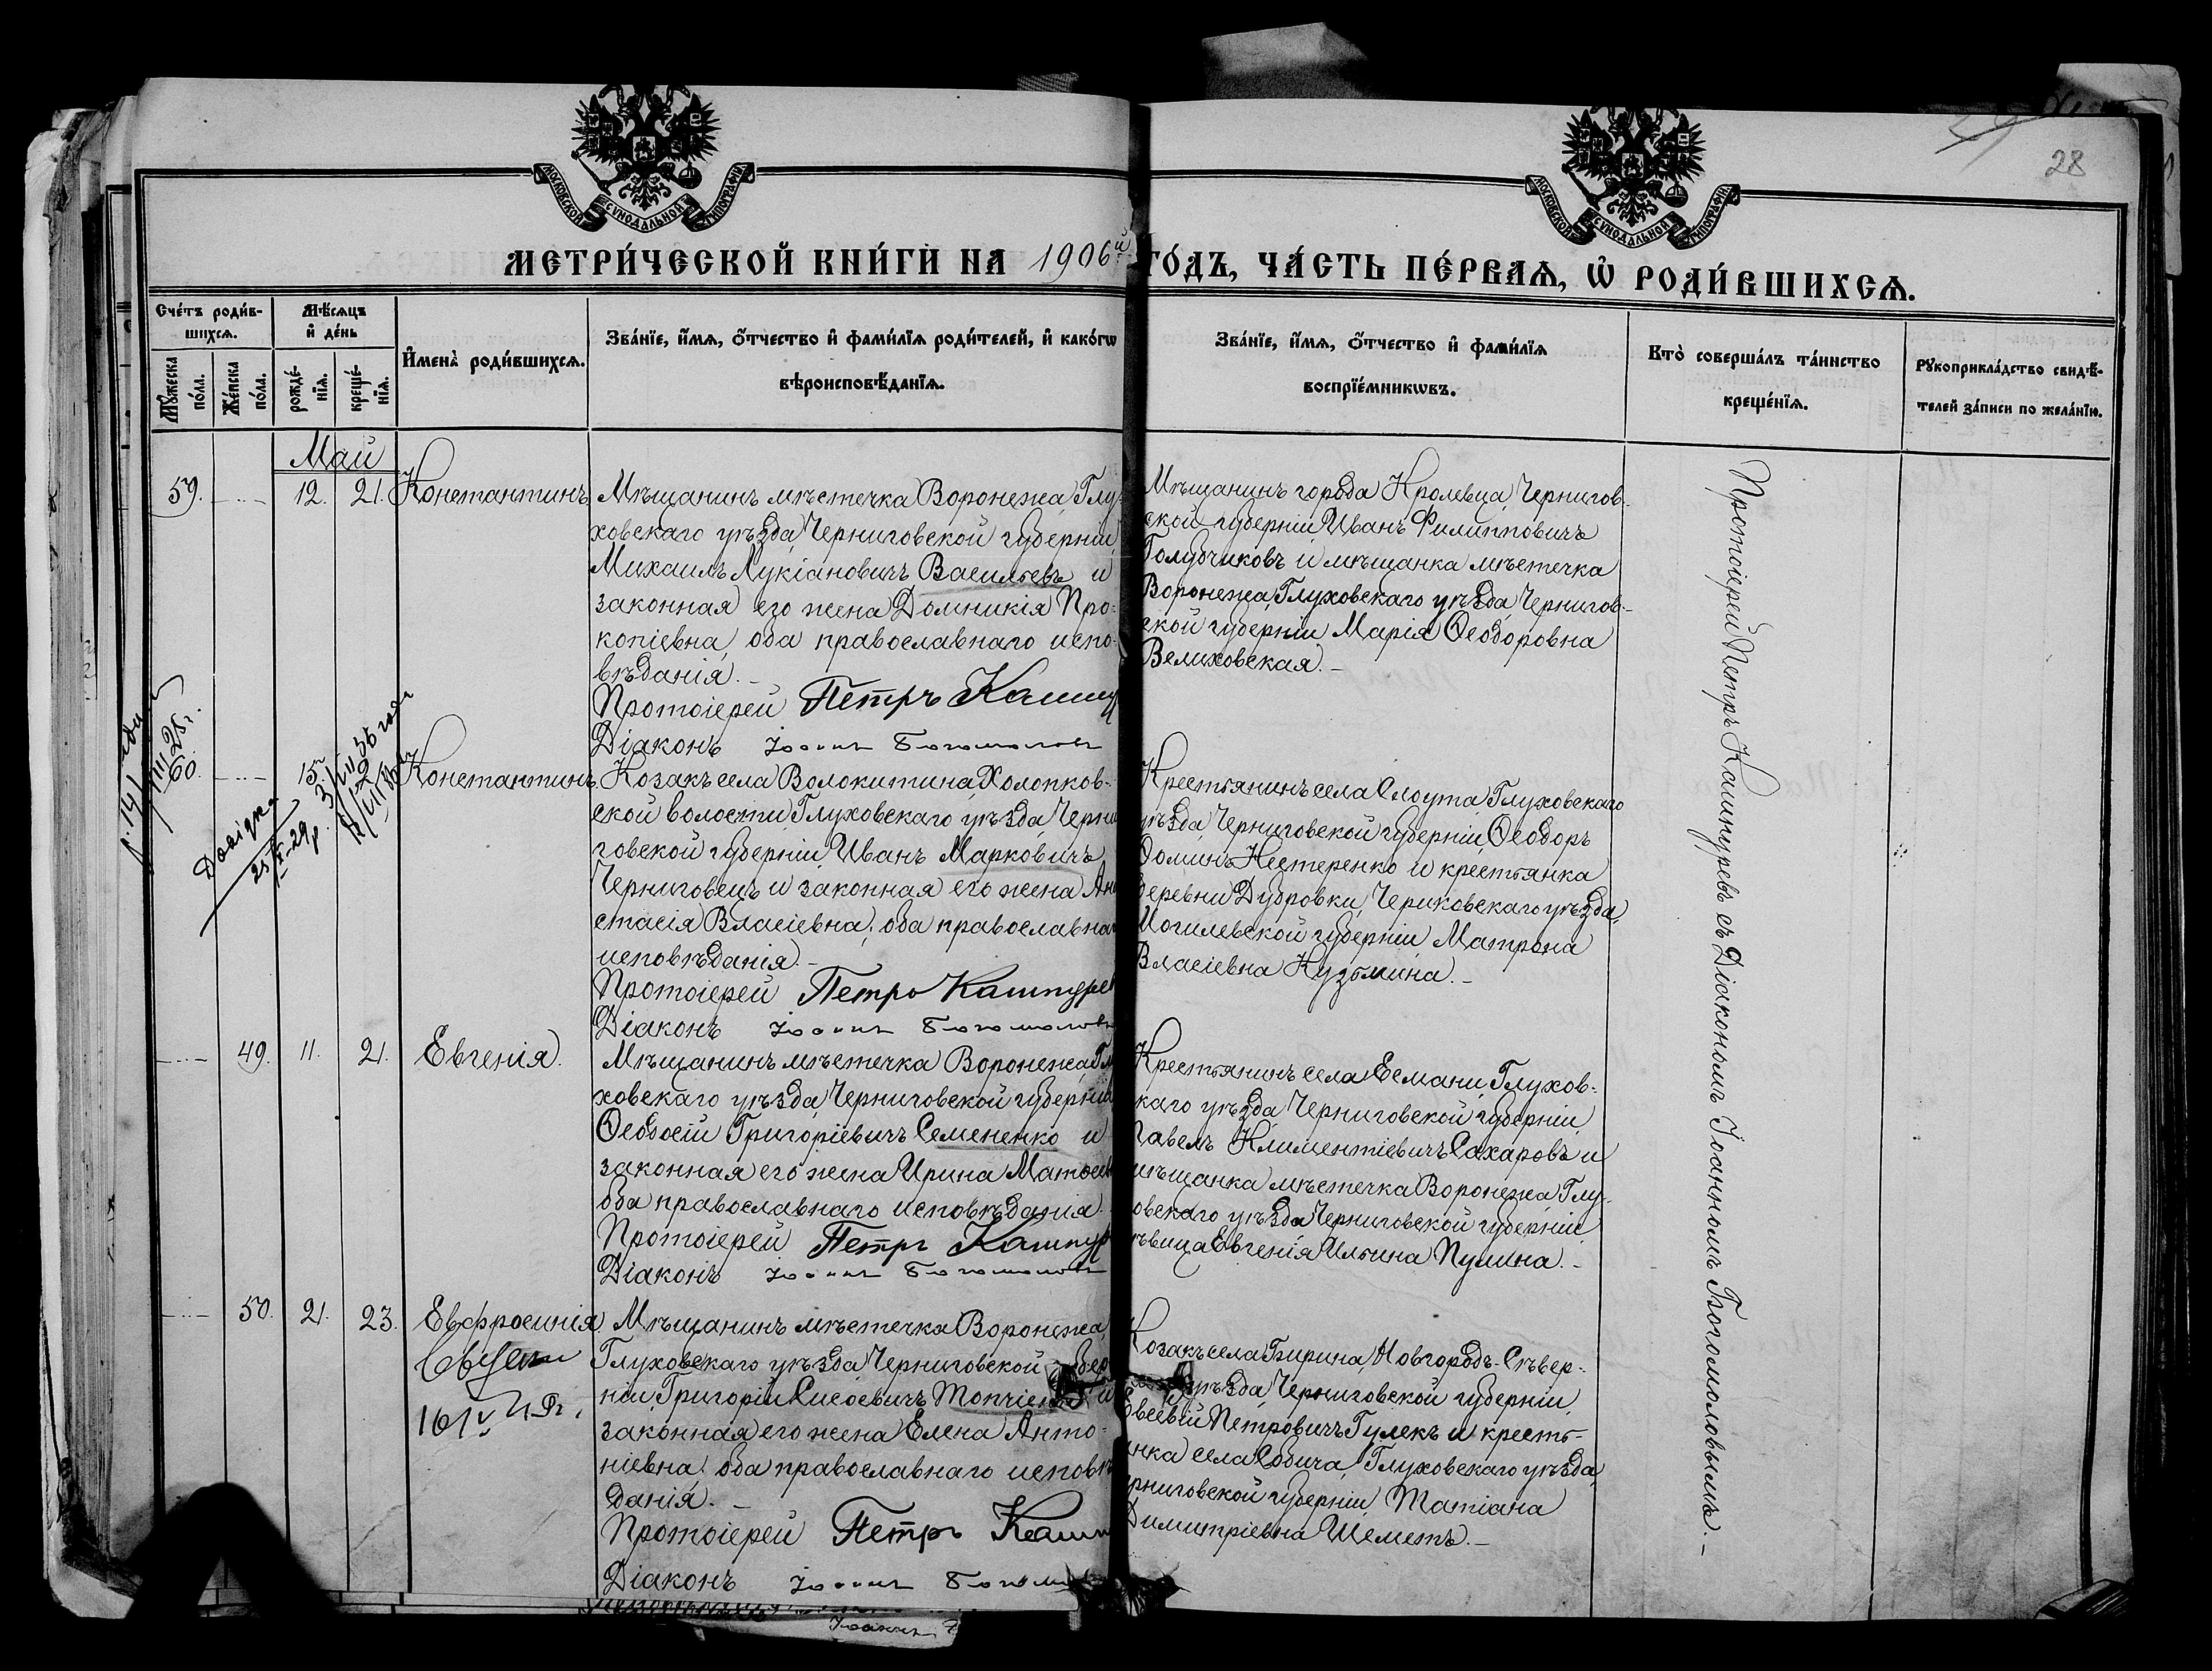 28
МОСКОВСКОЙ СѴНОДАЛЬНОЙ ТИПОГРАФІИ
МОСКОВСКОЙ СѴНОДАЛЬНОЙ ТИПОГРАФІИ
МЕТРИ́ЧЕСКОЙ КНИ́ГИ НА 1906й ГО́ДЪ, ЧА́СТЬ ПЕ́РВАѦ, Ѡ҆ РОДИ́ВШИХСѦ.
Сче́тъ роди́в-
шихсѧ.
Мꙋ́жеска по́ла.
Же́нска по́ла.
Мѣ́сѧцъ
и҆ де́нь
рожде́-
нїѧ.
креще́-
нїѧ.
И҆мена̀ роди́вшихсѧ.
Зва́нїе, и҆́мѧ, ѻ҆́тчество и҆ фами́лїѧ роди́телей, и҆ како́гѡ
вѣроисповѣ́данїѧ.
Зва́нїе, и҆́мѧ, ѻ҆́тчество и҆ фами́лїѧ
воспрїе́мникѡвъ.
Кто̀ соверша́лъ та́инство
креще́нїѧ.
Рꙋкоприкла́дство свидѣ́-
телей за́писи по жела́нїю.
Май
59. 12. 21. Константинъ.
Мѣщанинъ мѣстечка Воронежа, Глу-
ховскаго уѣзда, Черниговской губерніи,
Михаилъ Лукіановичъ Васильевъ и
законная его жена Домникія Про-
копіевна, оба православнаго испо-
вѣданія. –
Протоіерей Петръ Кашпу
Діаконъ Іоаннъ Богомоловъ
Мѣщанинъ города Кролевца, Чернигов-
ской губерніи, Иванъ Филипповичъ
Голубчиковъ и мѣщанка мѣстечка
Воронежа, Глуховскаго уѣзда, Чернигов-
ской губерніи Марія Ѳеодоровна
Велиховская. –
Протоіерей Петръ Кашпуревъ съ Діакономъ Іоанномъ Богомоловымъ. –
60. 15 Константинъ.
Довідка
Козакъ села Волокитина, Холопков-
ской волости, Глуховскаго уѣзда, Черни
говской губерніи, Иванъ Марковичъ
Черниговецъ и законная его жена Ана
стасія Власіевна, оба православна
исповѣданія. –
Протоіерей Петръ Кашпурев
Діаконъ Іоаннъ Богомоловъ
Крестьянинъ села Слоута, Глуховскаго
уѣзда, Черниговской губерніи, Ѳеодоръ
Ѳоминъ Нестеренко и крестьянка
деревни Дубровки, Чериковскаго уѣзда,
Могилевской губерніи, Матрона
Власіевна Кузьмина. –
49. 11. 21. Евгенія.
Мѣщанинъ мѣстечка Воронежа, Глу
ховскаго уѣзда, Черниговской губерніи
Ѳеодосій Григоріевичъ Семененко и
законная его жена Ирина Матѳеев
оба православнаго исповѣданія.
Протоіерей Петръ Кашпур
Діаконъ Іоаннъ Богомоловъ
Крестьянинъ села Есмани, Глухов-
скаго уѣзда, Черниговской губерніи,
Павелъ Климентіевичъ Сахаровъ и
мѣщанка мѣстечка Воронежа, Глу-
овскаго уѣзда Черниговской губерніи
ѣвица Евгенія Ильина Пулина. –
50. 21. 23. Евфросинія.
Мѣщанинъ мѣстечка Воронежа,
Глуховскаго уѣзда, Черниговской губер
ніи, Григорій Сисоевичъ Топчіенко и
законная его жена Елена Анто-
ніевна, оба православнаго исповѣ
данія. –
Протоіерей Петръ Кашп
Діаконъ Іоаннъ Богомо
Козакъ села Бирина, Новгородъ-Сѣвер-
уѣзда, Черниговской губерніи,
Евсевій Петровичъ Гулекъ и кресть-
янка села Собича, Глуховскаго уѣзда,
ерниговской губерніи, Татіана
Димитріевна Шеметъ. –